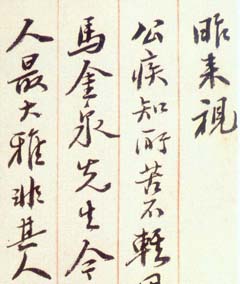 昨来視
公疾知所苦不軽
馬金泉先生今
人最大雅非其人